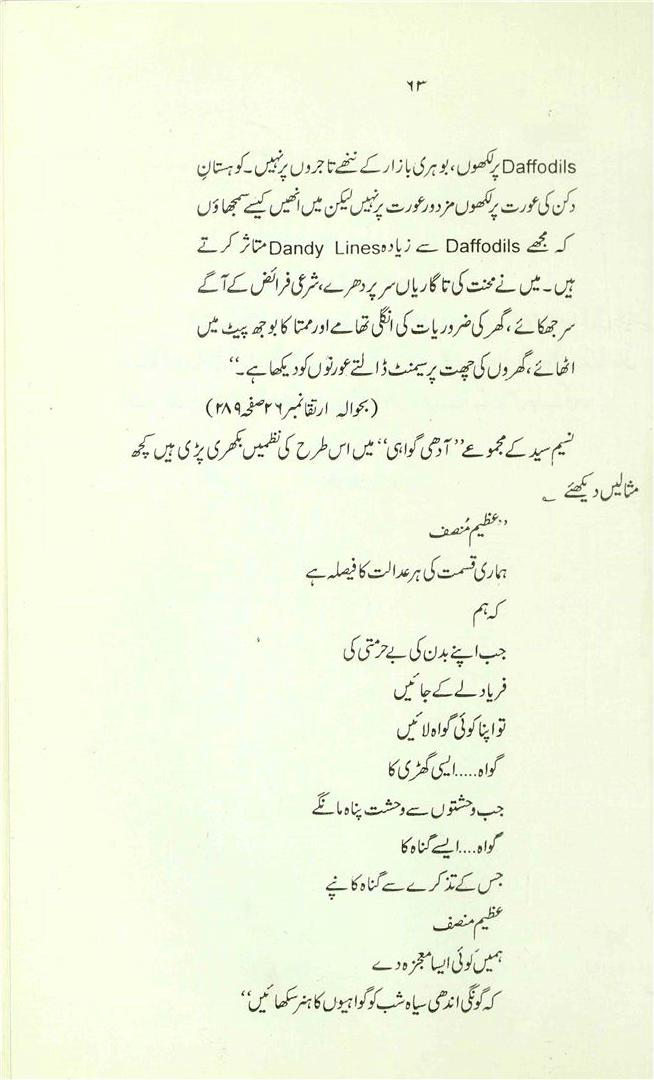 ۶۳
Daffodils پر لکھوں، بوہری بازار کے ننھے تاجروں پر نہیں۔ کوہستانِ
دکن کی عورت پر لکھوں مزدور عورت پر نہیں لیکن میں انھیں کیسے سمجھاؤں
کہ مجھے Daffodils سے زیادہ Dandy Lines متاثر کرتے
ہیں۔ میں نے محنت کی تاگاریاں سر پر دھرے، شرعی فرائض کے آگے
سر جھکائے، گھر کی ضروریات کی انگلی تھامے اور ممتا کا بوجھ پیٹ میں
اٹھائے، گھروں کی چھت پر سیمنٹ ڈالتے عورتوں کو دیکھا ہے۔“
(بحوالہ ارتقا نمبر ۲۶ صفحہ ۲۸۹)
نسیم سید کے مجموعے ”آدھی گواہی“ میں اس طرح کی نظمیں بکھری پڑی ہیں کچھ
مثالیں دیکھئے ؎
”عظیم مُنصف
ہماری قسمت کی ہر عدالت کا فیصلہ ہے
کہ ہم
جب اپنے بدن کی بے حرمتی کی
فریاد لے کے جائیں
تو اپنا کوئی گواہ لائیں
گواہ.....ایسی گھڑی کا
جب وحشتوں سے وحشت پناہ مانگے
گواہ....ایسے گناہ کا
جس کے تذکرے سے گناہ کانپے
عظیم منصف
ہمیں کوئی ایسا معجزہ دے
کہ گونگی اندھی سیاہ شب کو گواہیوں کا ہنر سکھائیں“